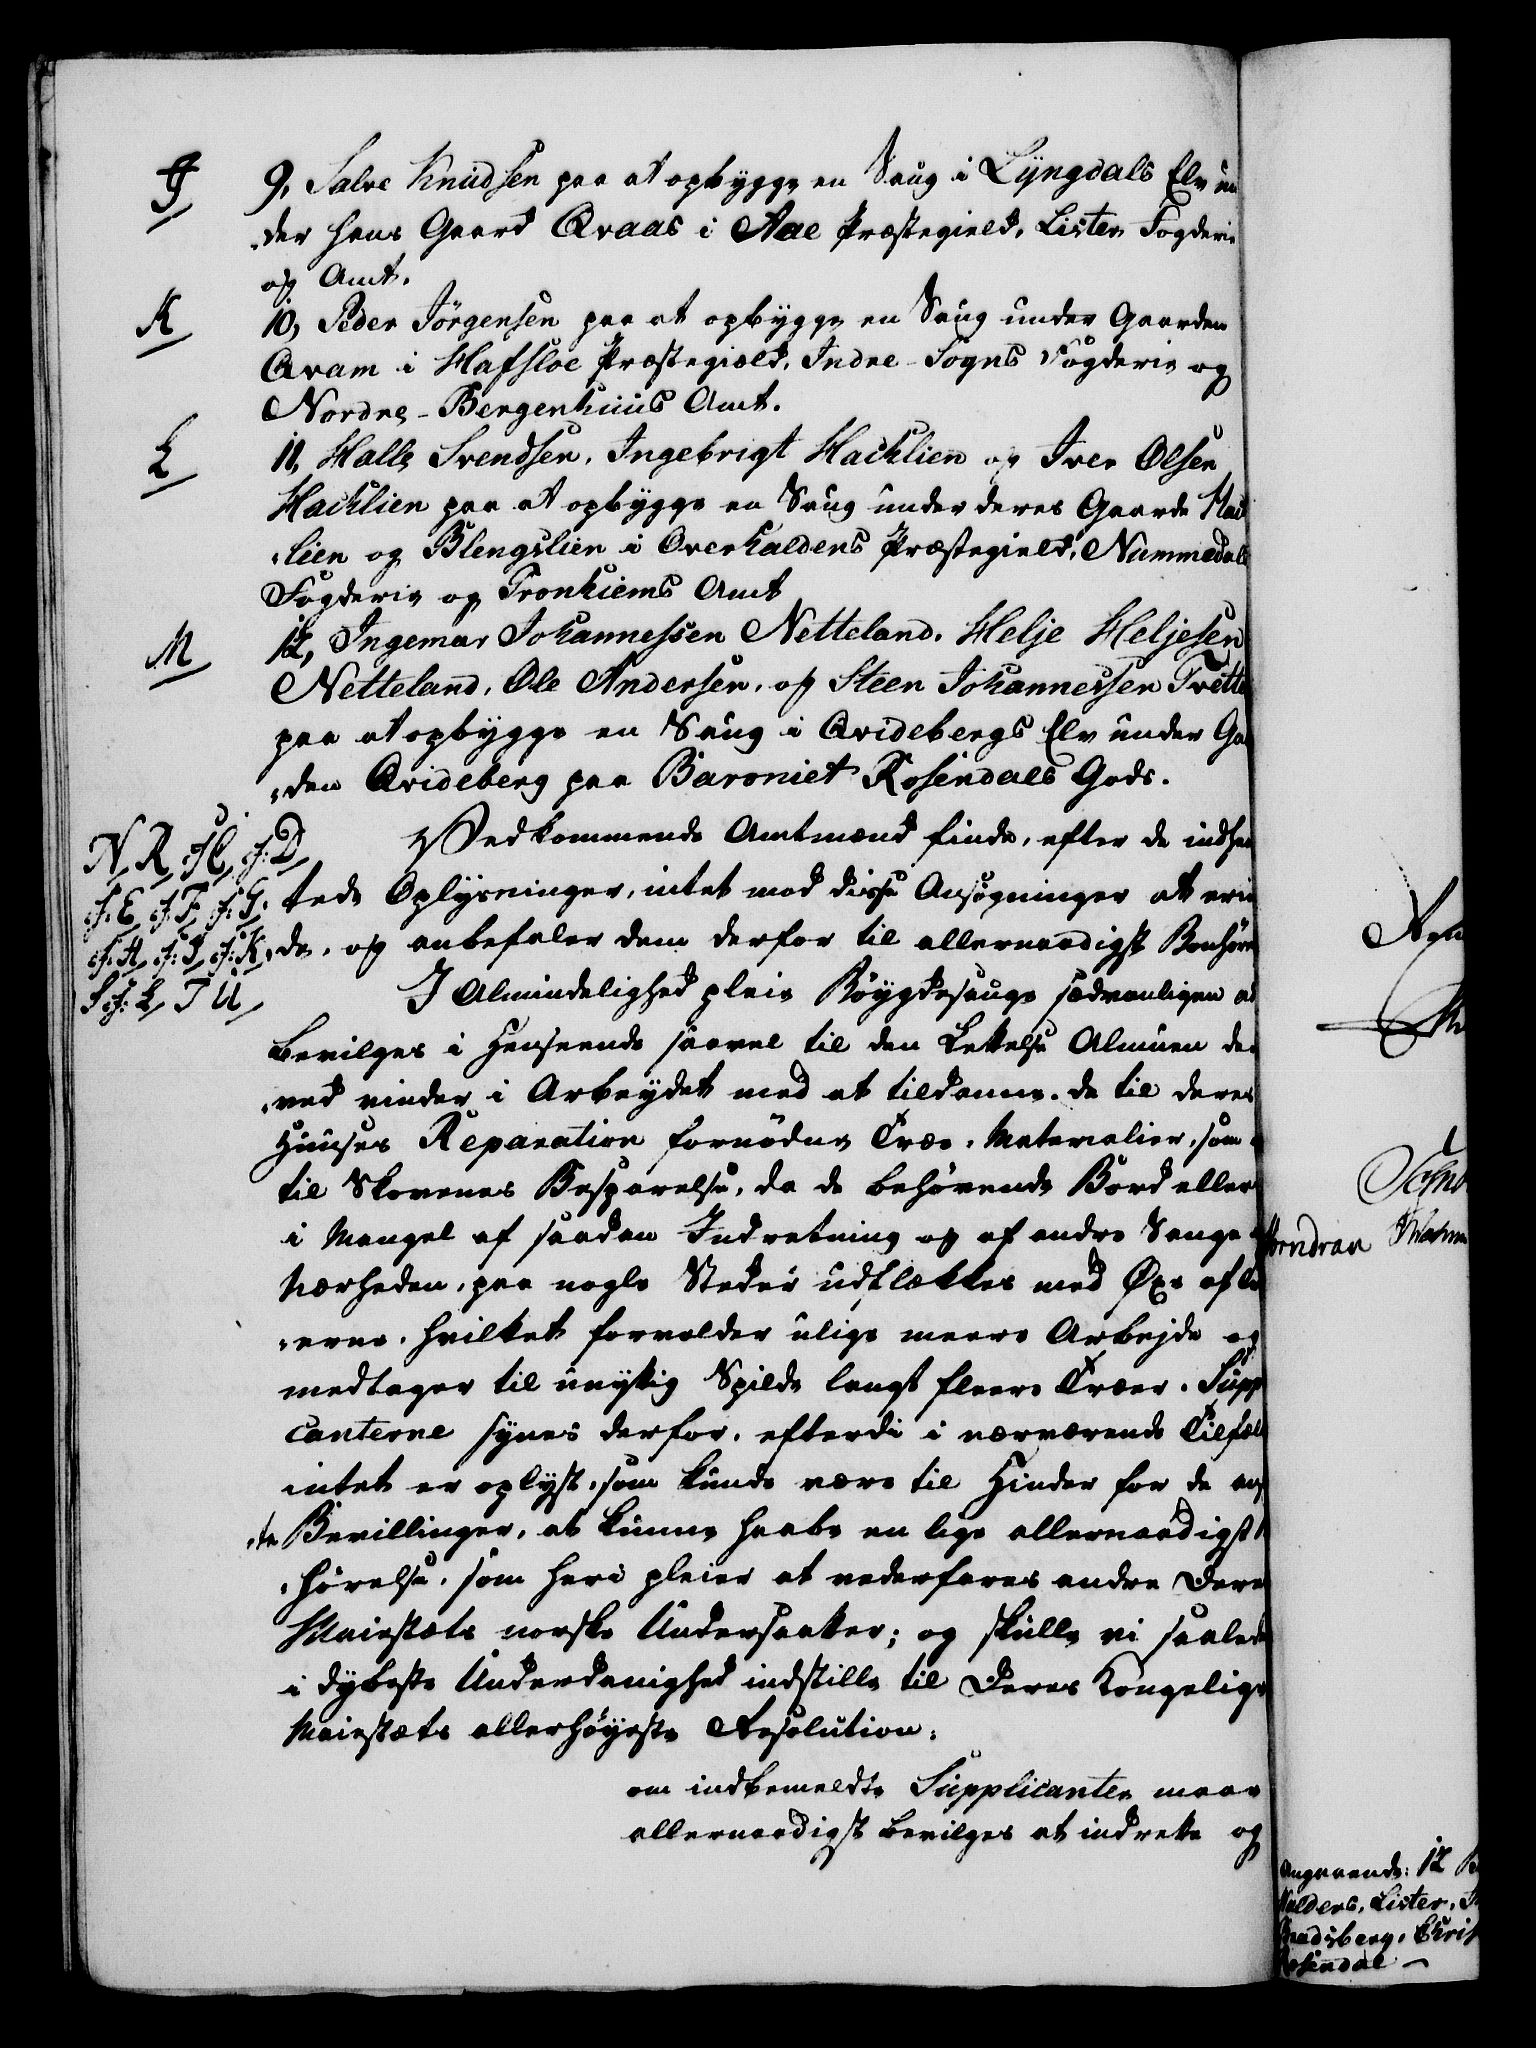 J
9, Salve Knudsen paa at opbygge en Saug i Lyngdals Elv un
der hans Gaard Qvaas i Aae Præstegield, Lister Fogderie
og Amt.
K
10, Peder Jörgensen paa at opbygge en Saug under Gaarden
Qvam i Hafsloe Præstegield, Indre-Sogns Fogderie og
Nordre-Bergenhuus Amt.
L
11, Halle Svendsen, Ingebrigt Hacklien og Iver Olsen
Hacklien paa at opbygge en Saug under deres Gaarde Hac
lien og Blengslien i Overhaldens Præstegield, Nummedals
Fogderie og Tronhiems Amt
M
12, Ingemar Johannessen Netteland, Helje Heljesen
Netteland, Ole Andersen, og Steen Johannessen Tvette
paa at opbygge en Saug i Qvidebergs Elv under Ga
den Qvideberg paa Baroniet Rosendals Gods.
N, R, 
Vedkommende Amtmænd finde, efter de indhen
J:E, J:F, J:G,
tede Oplysninger, intet mod disse Ansögninger at erin
J:H, J:J, J:K,
de, og anbefaler dem derfor til allernaadigst Bönhörel
S J:L, T U,
I Almindelighed pleie Böygdesauge sædvanligen at
bevilges i Henseende saavel til den Lettelse Almuen der
ved vinder i Arbeydet med at tildanne de til deres
Huuses Reparation fornödne Træe-Materialier, som
til Skovenes Besparelse, da de behövende Bord ellers
i Mangel af saadan Indretning og af andre Sauge i
Nærheden, paa nogle Steder udklækkes med Öxe af Træ
erne, hvilket forvolder ulige meere Arbejde og
medtager til unyttig Spilde langt fleere Træer. Supp
canterne synes derfor, efterdi i nærværende Tilfæl
intet er oplyst, som kunde være til Hinder for de ansög
te Bevillinger, at kunne haabe en lige allernaadigst
hörelse, som heri pleier at vederfares andre Deres
Maiestæts norske Undersaatter; og skulle vi saaledes
i dybeste Underdanighed indstille til Deres Kongelige
Maiestæts allerhöyeste Resolution:
om indbemeldte Supplicanter maae
allernaadigst bevilges at indrette og
Angaaende: 12
Lister,
Bradsberg, Chri
Rosendal